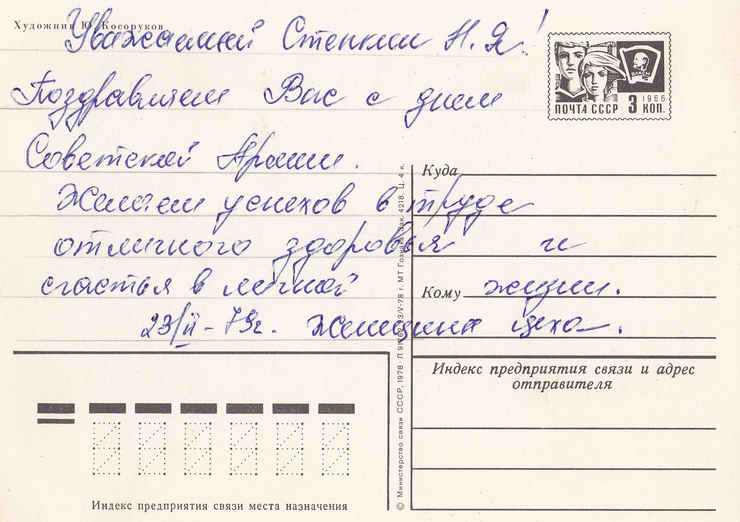 Художник Ю. Косоруков
Уважаемый Степкин Н. Я!
Поздравляем Вас с днем
Советской Армии.
Желаем успехов в труде
отличного здоровья и
счастья в личной жизни.
23/II-79г. Женщины цеха.
ПОЧТА СССР 3 КОП.
1966
Куда
Кому
Индекс предприятия связи и адрес
отправителя
Индекс предприятия связи места назначения
© Министерство связи СССР, 1978